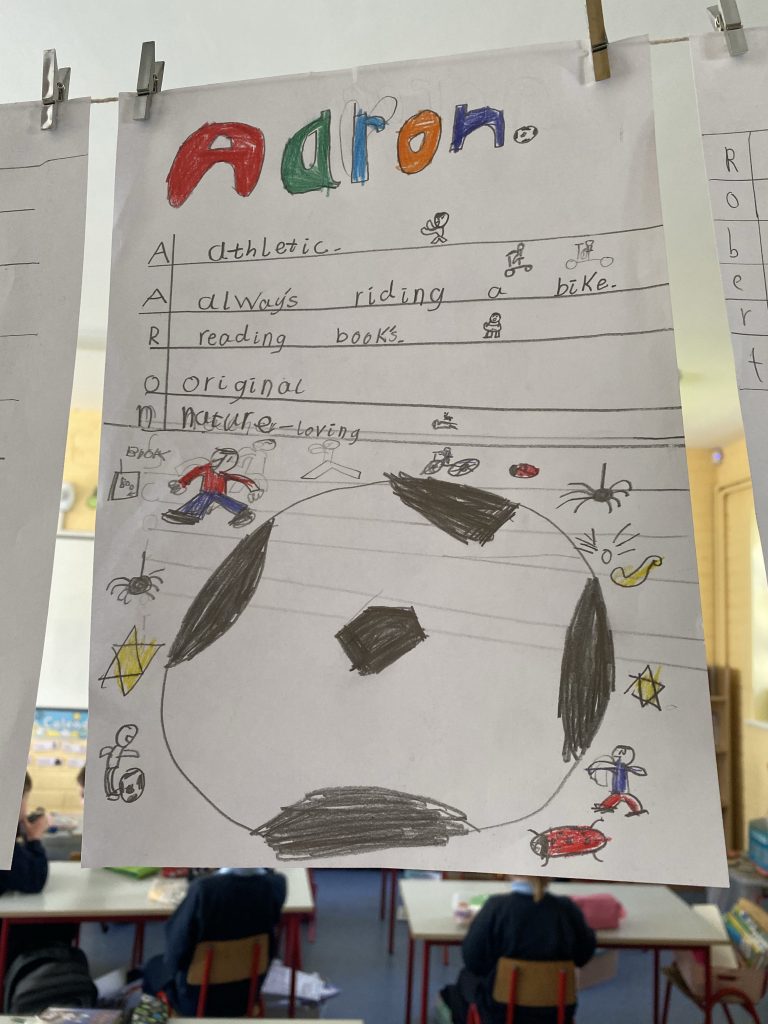 Aaron.
A athletic.
A always riding a bike.
R reading book's.
O original
n nature-loving
BOOK
R
o
b
e
r
t